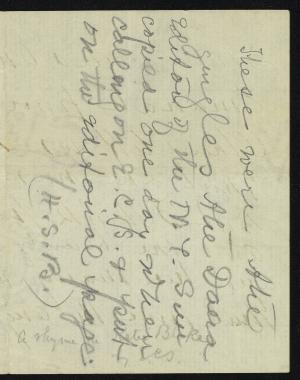 These were the
jingles the Dana
editor of the N.Y. Sun
copied one day when
calling on E.C.B. & put
on the editorial page.
(H.S.B.)
A rhyme